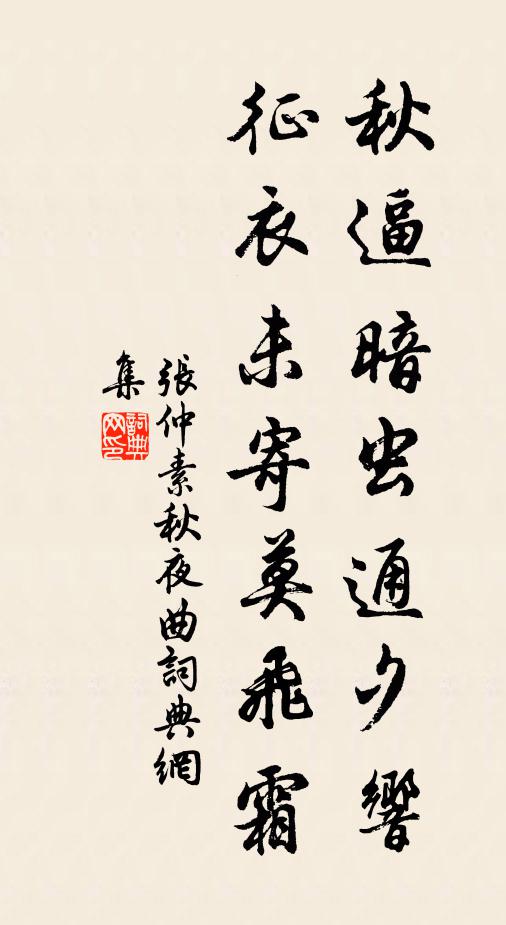 秋逼暗虫通夕響
征衣未寄莫飛霜
張仲素秋夜曲詞典網
集
詞典
网印